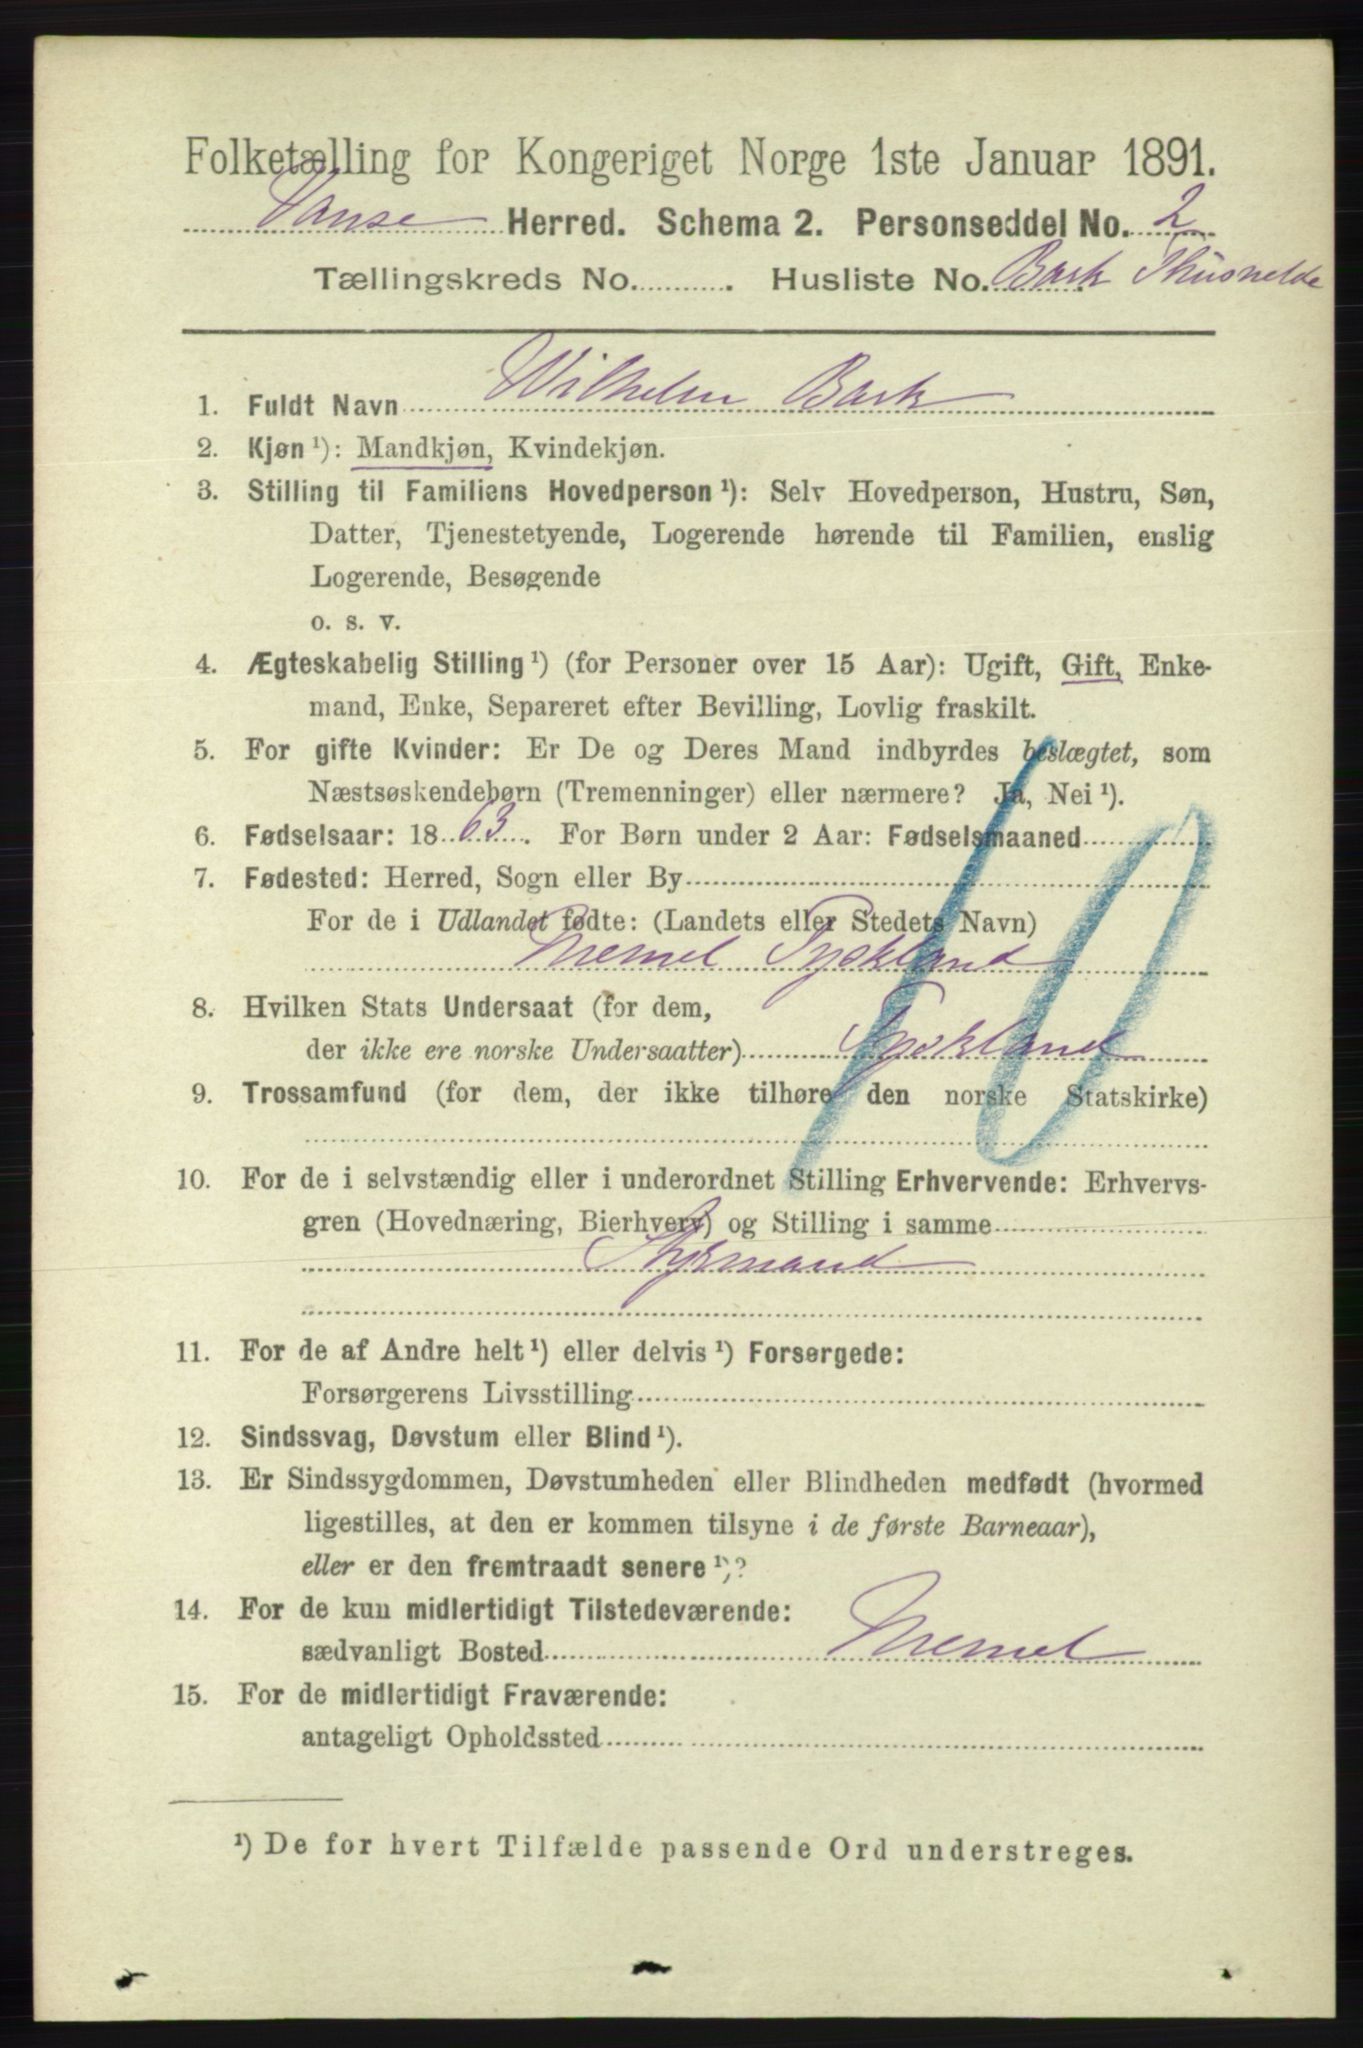 Folketælling for Kongeriget Norge 1ste Januar 1891.
Vanse Herred. Schema 2. Personseddel No. 2
Tællingskreds No. ............ Husliste No. Bark Thusnelde
1. Fuldt Navn Wilhelm Bark
2. Kjøn ¹): Mandkjøn, Kvindekjøn.
3. Stilling til Familiens Hovedperson ¹): Selv Hovedperson, Hustru, Søn,
Datter, Tjenestetyende, Logerende hørende til Familien, enslig
Logerende, Besøgende
o. s. v.
4. Ægteskabelig Stilling ¹) (for Personer over 15 Aar): Ugift, Gift, Enke-
mand, Enke, Separeret efter Bevilling, Lovlig fraskilt.
5. For gifte Kvinder: Er De og Deres Mand indbyrdes beslægtet, som
Næstsøskendebørn (Tremenninger) eller nærmere? Ja, Nei ¹).
6. Fødselsaar: 1863. For Børn under 2 Aar: Fødselsmaaned
7. Fødested: Herred, Sogn eller By
For de i Udlandet fødte: (Landets eller Stedets Navn)
Memel Tyskland
8. Hvilken Stats Undersaat (for dem,
der ikke ere norske Undersaatter) Tyskland
9. Trossamfund (for dem, der ikke tilhøre den norske Statskirke)
10
10. For de i selvstændig eller i underordnet Stilling Erhvervende: Erhvervs-
gren (Hovednæring, Bierhverv) og Stilling i samme
Styrmand
11. For de af Andre helt ¹) eller delvis ¹) Forsørgede:
Forsørgerens Livsstilling
12. Sindssvag, Døvstum eller Blind ¹).
13. Er Sindssygdommen, Døvstumheden eller Blindheden medfødt (hvormed
ligestilles, at den er kommen tilsyne i de første Barneaar),
eller er den fremtraadt senere ¹)?
14. For de kun midlertidigt Tilstedeværende:
sædvanligt Bosted Memel
15. For de midlertidigt Fraværende:
antageligt Opholdssted
¹) De for hvert Tilfælde passende Ord understreges.